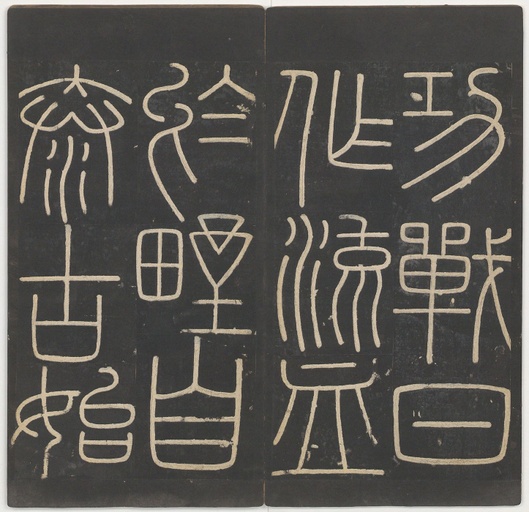 功戰日
作流血
於野自
泰古始